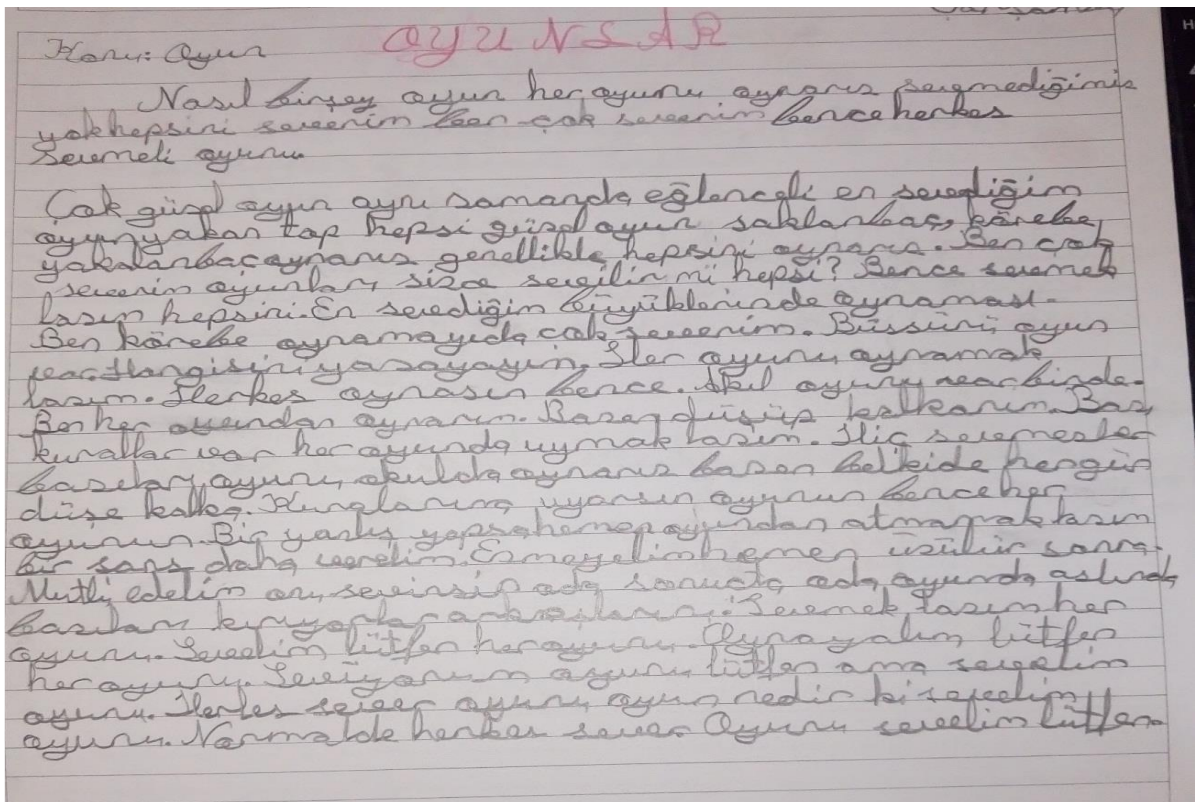 OYUNSAR
Konu: Oyun
Nasıl birşey oyun her oyunu oynarız sevmediğimiz
yok hepsini severim ben çok severim bence herkes
sevmeli oyunu
Çok güzel oyun aynı zamanda eğlenceli en sevdiğim
oyun yakan top hepsi güzel oyun saklanbaç, körebe,
yakalanbaç oynarız genellikle hepsini oynarız. Ben çok
severim oyunları, sizce sevilir mi hepsi? Bence sevmek
lazım hepsini. En sevdiğim büyüklerinde oynaması.
Ben körebe oynamayıda çok severim. Bürsürü oyun
var. Hangisini yazayayım. Her oyunu oynamak
lazım. Herkes oynasın bence. Akıl oyunu var birde.
Ben her oyundan oynarım. Bazen düşüp kalkarım. Bazı
kurallar var her oyunda uymak lazım. Hiç sevmezler
bazıları oyunu, okulda oynarız bazen belkide hergün
düşe kalka. Kurallarına uyarsın oyunun bence her
oyunun. Bir yanlış yapsa hemen oyundan atmamak lazım
bir şans daha verelim. hemen üzülür sonra.
Mutlu edelim onu sevinsin oda sonuçta oda oyunda aslında
bazıları kırıyorlar arkadaşlarını. Sevmek lazım her
oyunu. Sevelim lütfen her oyunu. Oynayalım lütfen
her oyunu. Seviyorum oyunu lütfen ama sevelim
oyunu. Herkes sever oyunu oyun nedir ki sevelim
oyunu. Normalde herkes sever Oyunu sevelim lütfen.